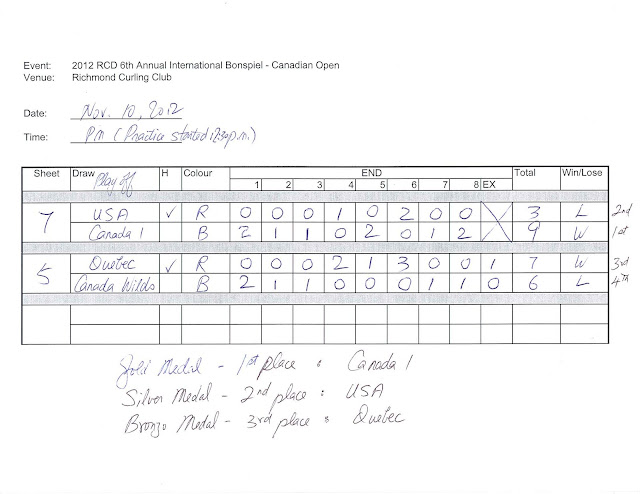 Event: 2012 RCD 6th Annual International Bonspiel - Canadian Open
Venue: Richmond Curling Club
Date: Nov. 10, 2012
Time: PM (Practice started 12:30p.m.)
Sheet Draw Play off H Colour END Total Win/Lose
1 2 3 4 5 6 7 8 EX
7 USA ✓ R 0 0 0 1 0 2 0 0 X 3 L 2nd
Canada 1 B 2 1 1 0 2 0 1 2 9 W 1st
5 Quebec ✓ R 0 0 0 2 1 3 0 0 1 7 W 3rd
Canada Wilds B 2 1 1 0 0 0 1 1 0 6 L 4th
Gold Medal - 1st place : Canada 1
Silver Medal - 2nd place : USA
Bronzo Medal - 3rd place : Quebec